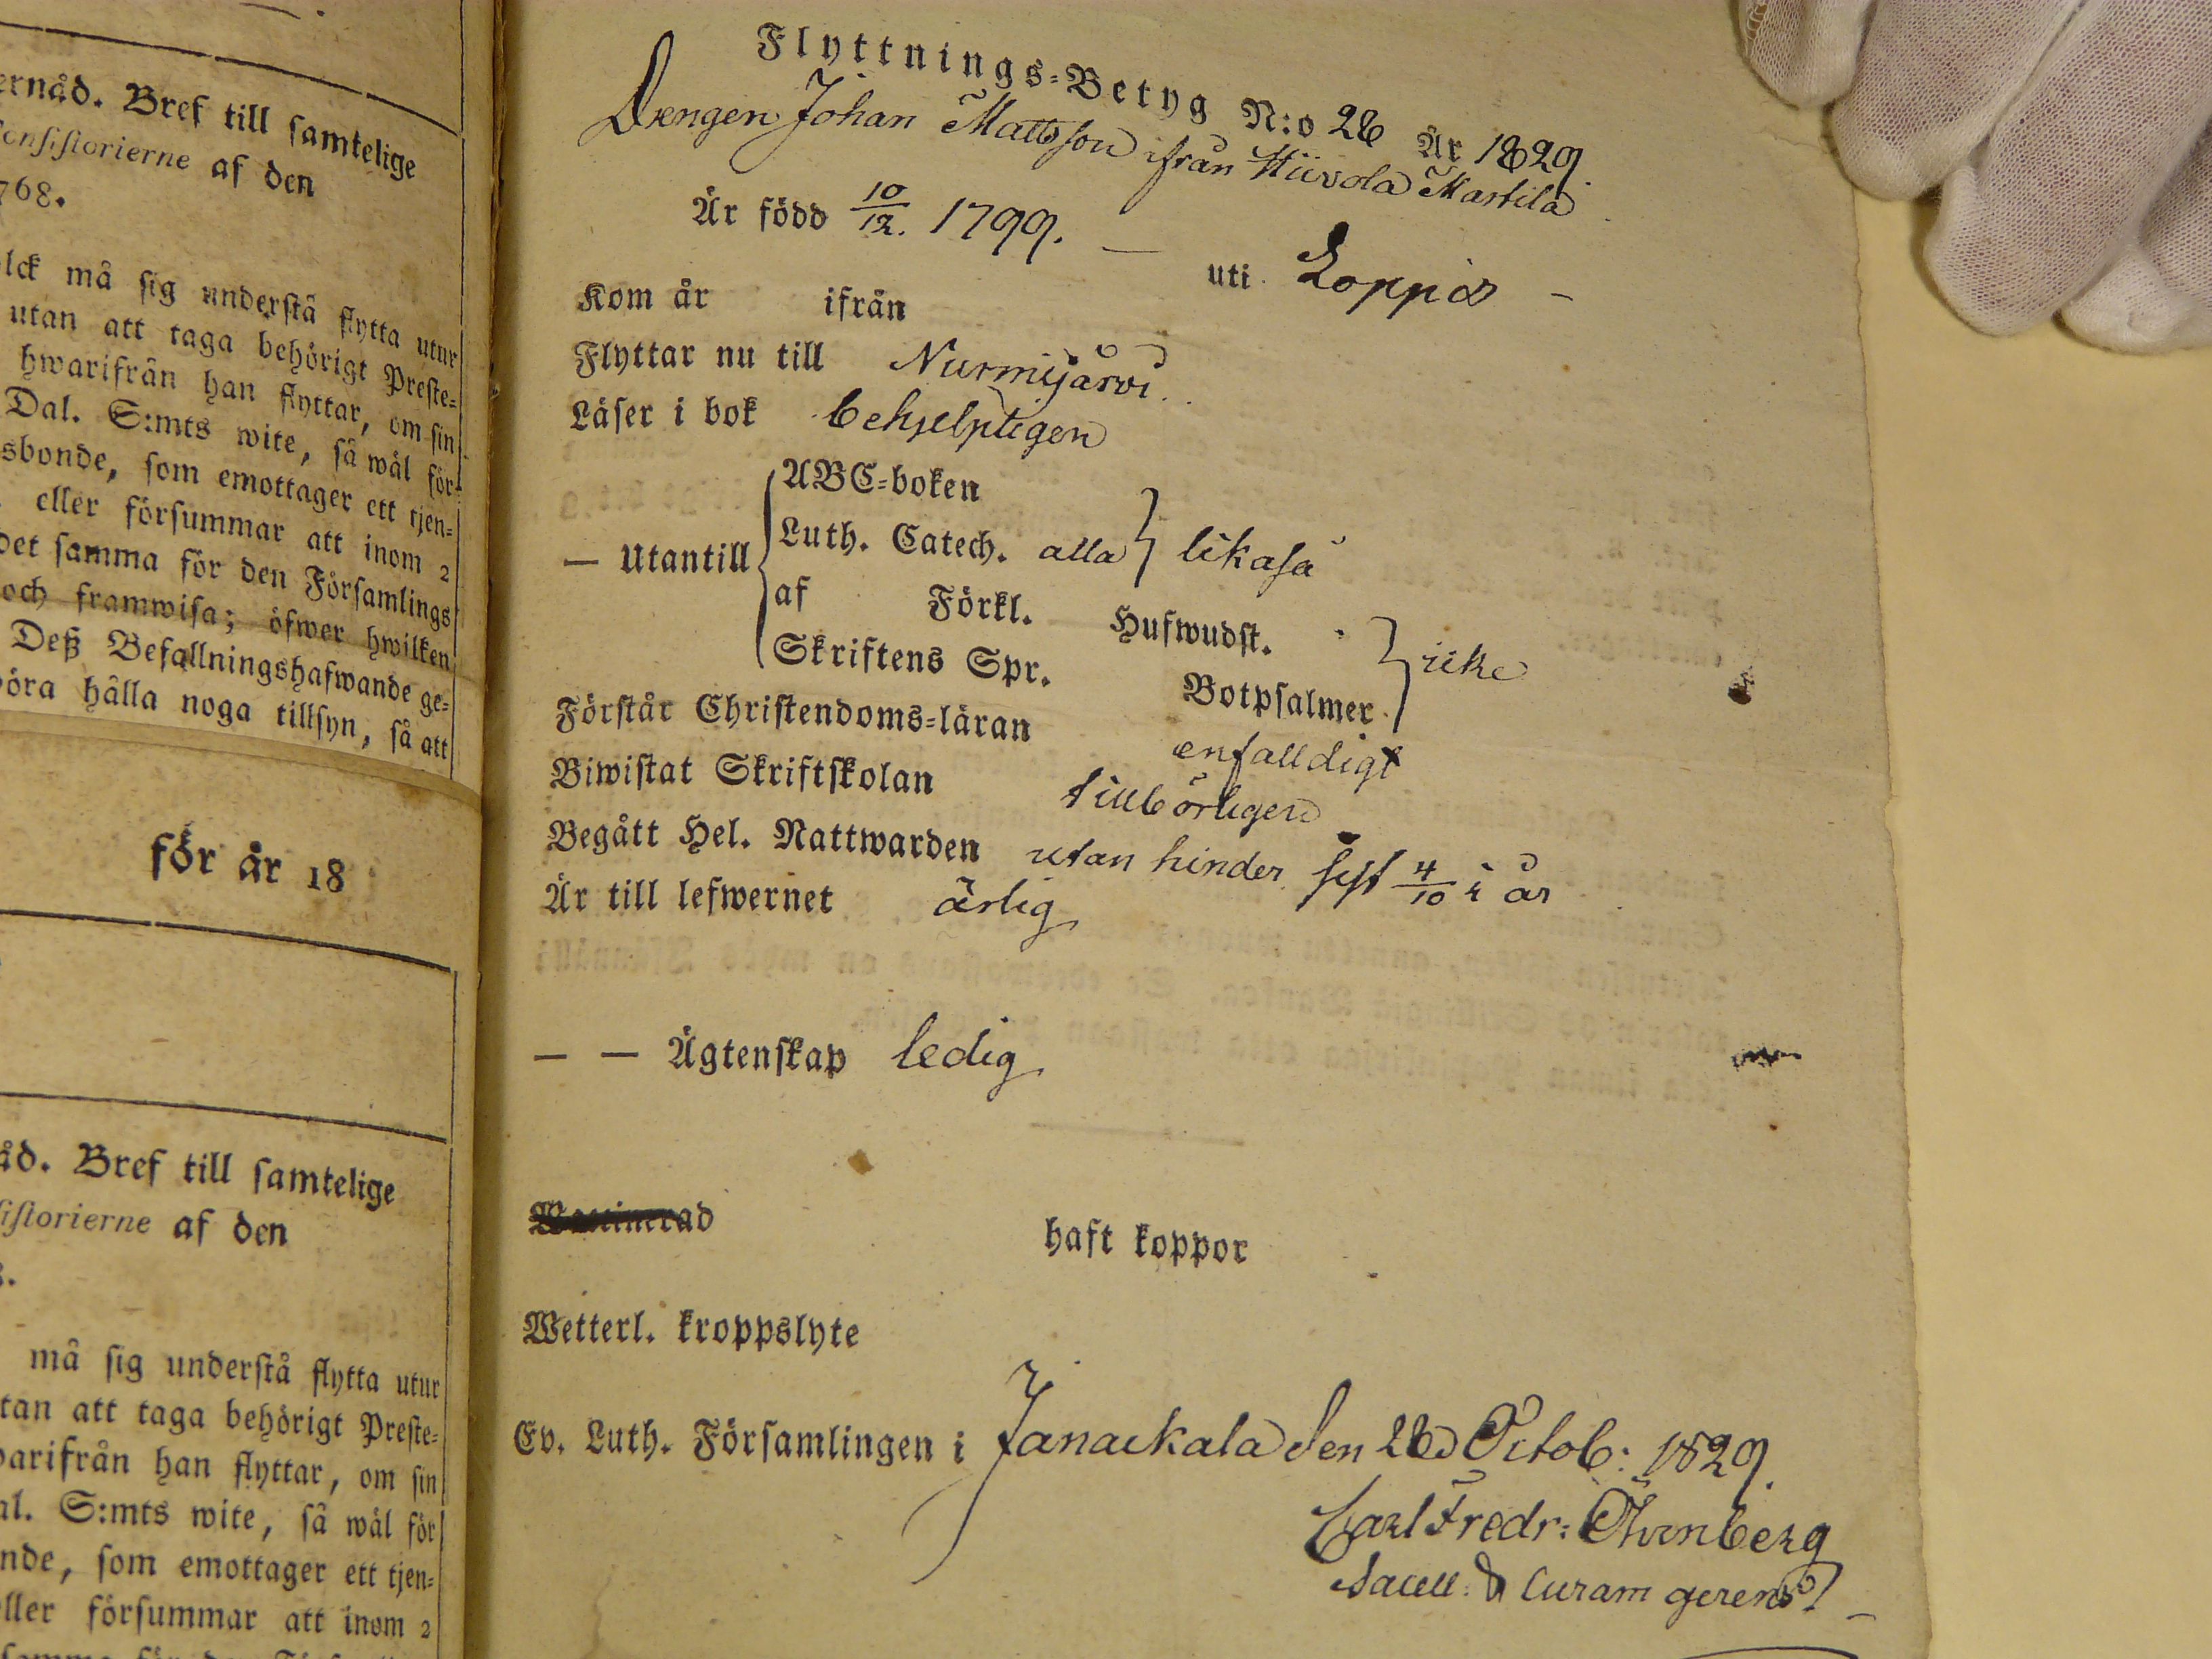 ernåd. Bref till samtelige
onsistorierne af den
768.
lck må sig understå flytta utur
utan att taga behörigt Preste=
hwarifrån han flyttar, om sin
Dal. S:mts wite, så wäl för=
sbonde, som emottager ett tjen=
eller försummar att inom 2
det samma för den Församlings
och framwisa; öfwer hwilken
Deß Befallningshafwande ge=
öra hålla noga tillsyn, så att
för år 18
åd. Bref till samtelige
sistorierne af den
må sig understå flytta utur
tan att taga behörigt Preste=
warifrån han flyttar, om sin
al. S:mts wite, så wäl för
nde, som emottager ett tjen=
ller försummar att inom 2
Flyttnings=Betyg N:o 28 År 1829.
Drengen Johan Mattsson ifrån Hiivola Martila
Är född 10/12. 1799. — uti Loppis —
Kom år ifrån
Flyttar nu till Nurmijärvi.
Läser i bok behjelpligen
— Utantill
ABC=boken
Luth. Catech. alla } likaså
af Förkl. Hufwudst.
Skriftens Spr. Botpsalmer } icke
Förstår Christendoms=läran enfalldigt
Biwistat Skriftskolan tillbörligen
Begått Hel. Nattwarden utan hinder sist 4/10 i år
Är till lefwernet ärlig
— — Ägtenskap ledig
haft koppor
Wetterl. kroppslyte
Ev. Luth. Församlingen i Janackala den 28 Octob: 1829.
Carl Fredr: Öhrnberg
Sacell: & Curam gerens